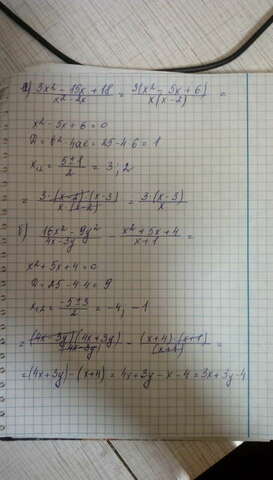 а) (3x² - 15x + 18)/(x² - 2x) = 3(x² - 5x + 6)/(x(x - 2)) =
x² - 5x + 6 = 0
D = b² - 4ac = 25 - 4·6 = 1
x₁,₂ = (5 ± 1)/2 = 3; 2
= 3·(x - 2)·(x - 3)/(x·(x - 2)) = 3·(x - 3)/x
б) (16x² - 9y²)/(4x - 3y) - (x² + 5x + 4)/(x + 1) =
x² + 5x + 4 = 0
D = 25 - 4·4 = 9
x₁,₂ = (-5 ± 3)/2 = -4, -1
= (4x - 3y)(4x + 3y)/(4x - 3y) - (x + 4)·(x + 1)/(x + 1) =
= (4x + 3y) - (x + 4) = 4x + 3y - x - 4 = 3x + 3y - 4